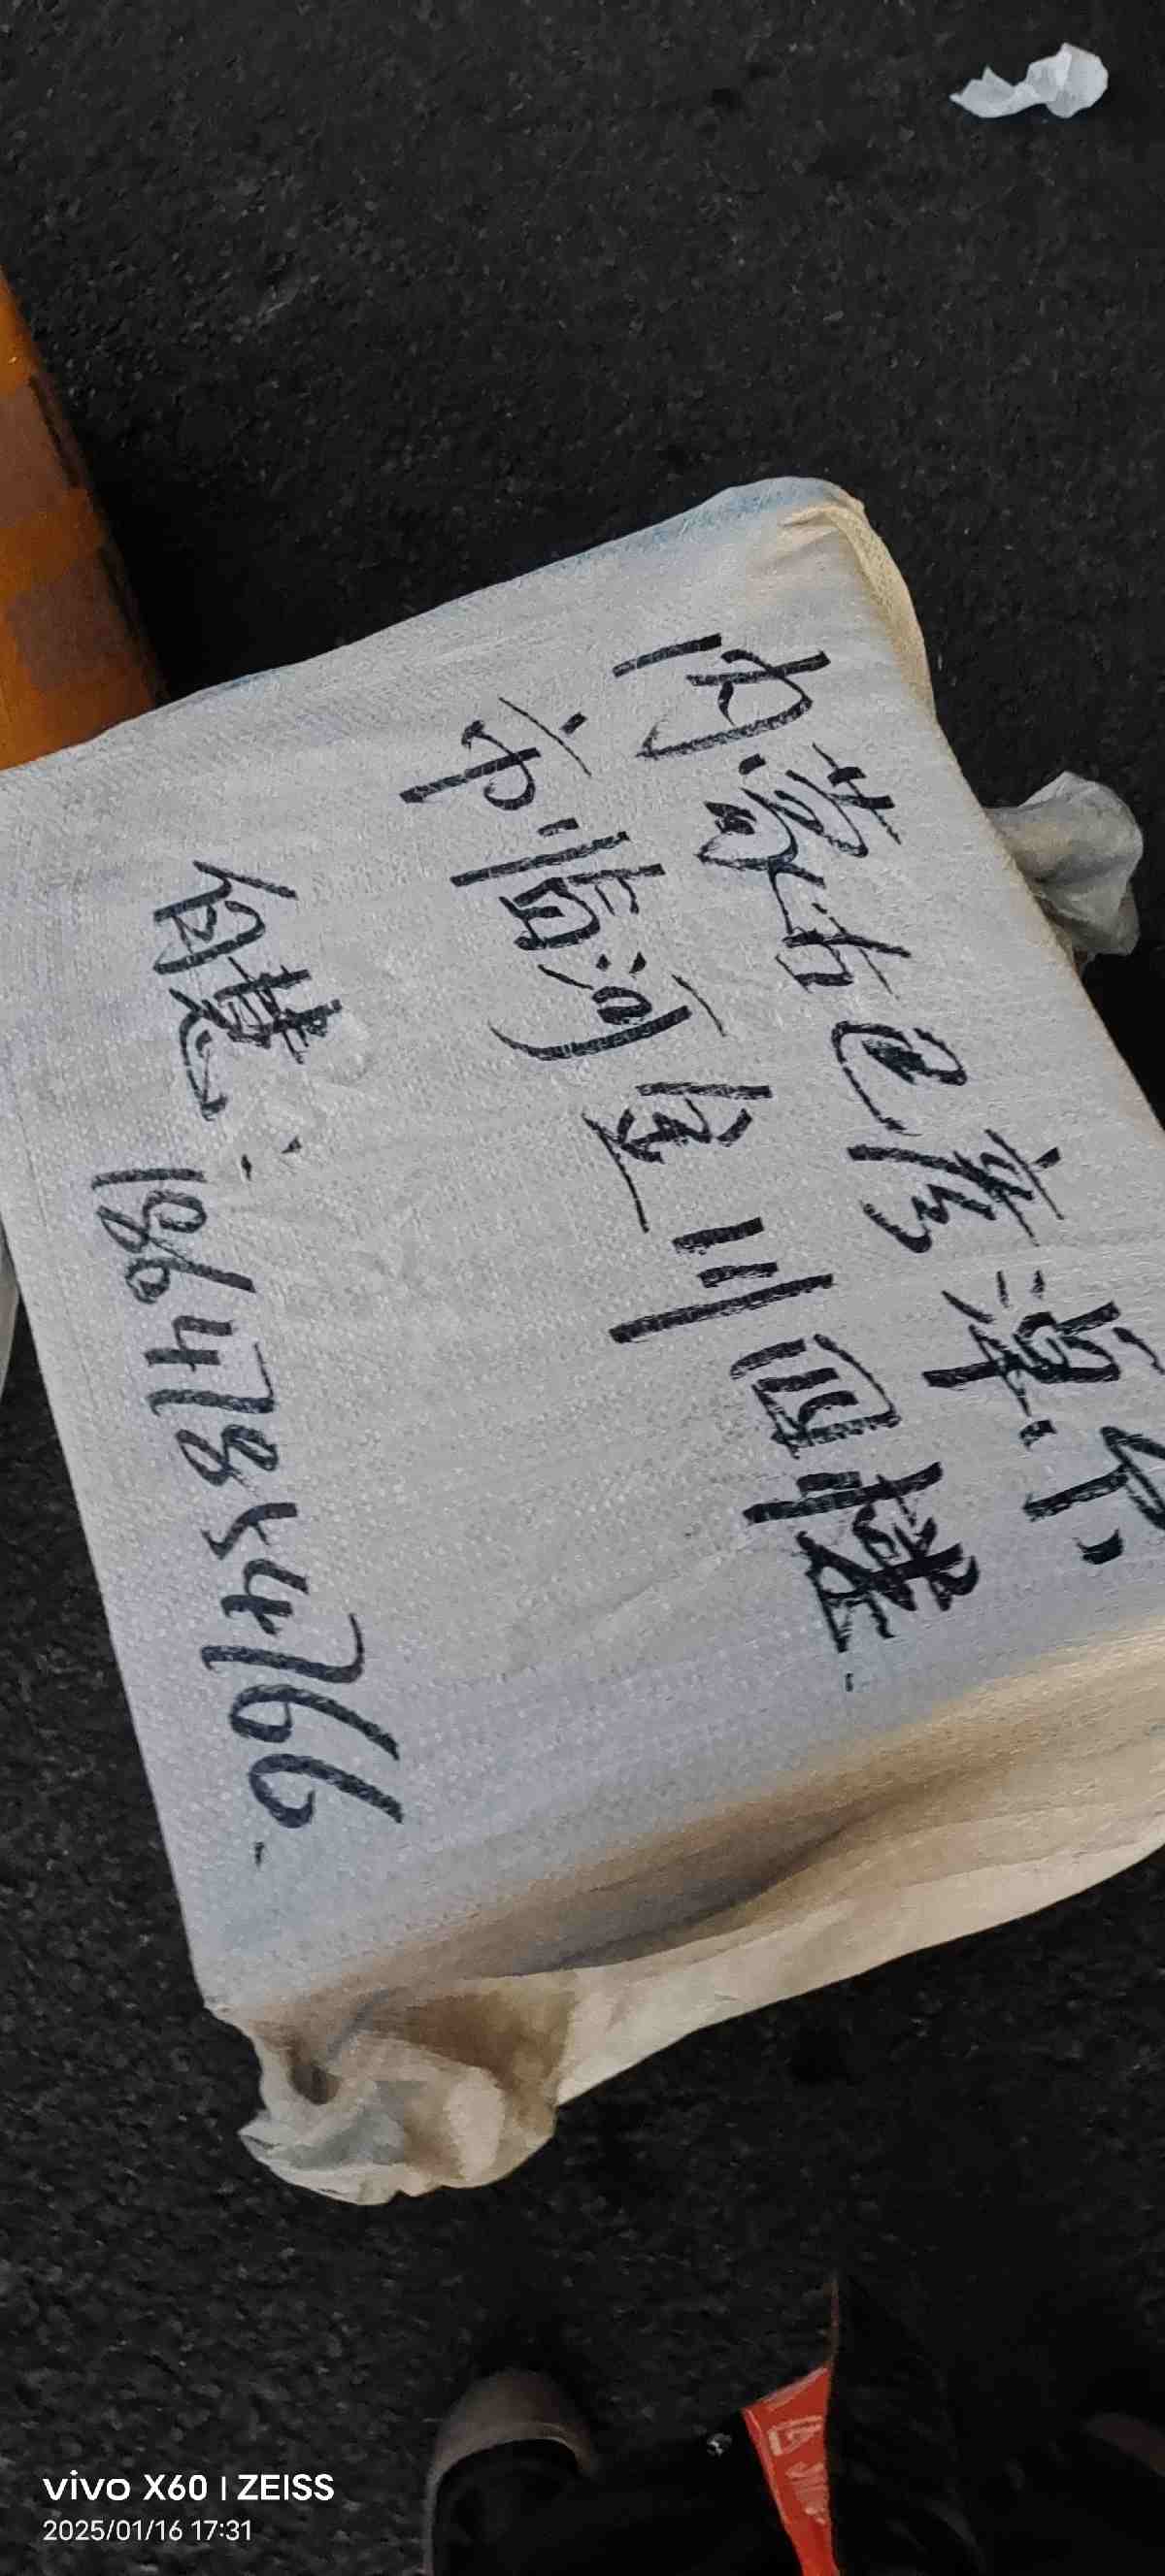 内蒙古巴彦淖尔
市临河区川四楼
白慧:
18647854766
vivo X60 | ZEISS
2025/01/16 17:31